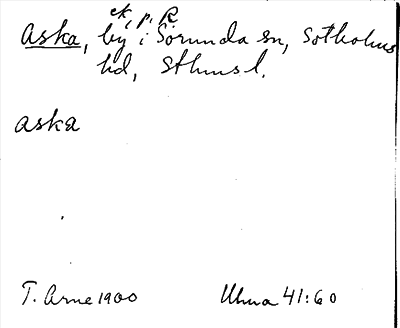 ek, p. R
Aska, by i Sorunda sn, Sotholms
hd, Sthms l.
aska
T. Arne 1900 Uhma 41:60